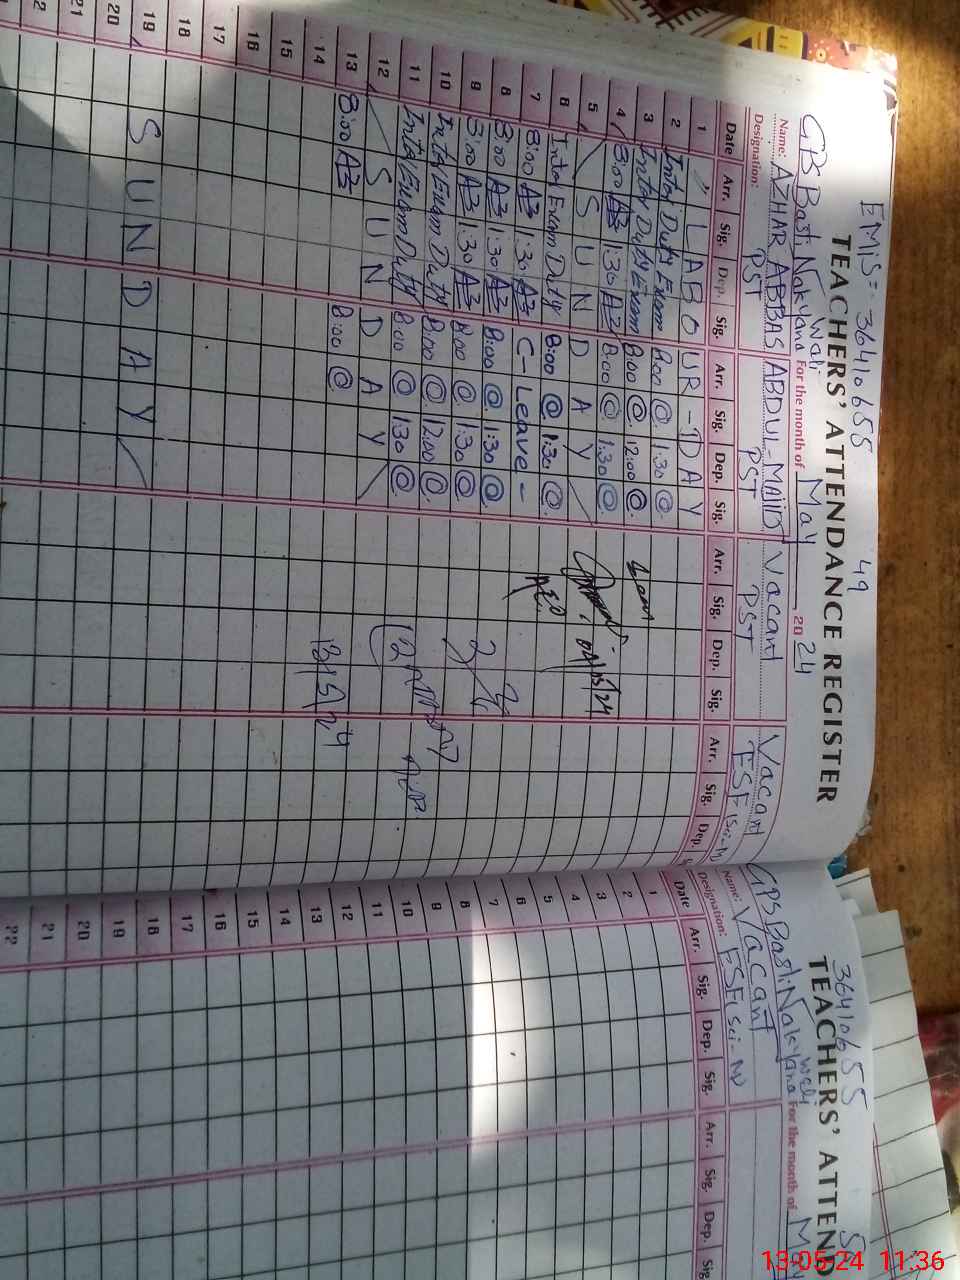 EMIS=. 36410655 49
TEACHERS' ATTENDANCE REGISTER
GPS Basti Nakyana Wali For the month of May 2024
Name: AZHAR ABBAS ABDUL-MAJID Vacant Vacant
Designation: PST PST PST ESE (Sci-M)
Date Arr. Sig. Dep. Sig. Arr. Sig. Dep. Sig. Arr. Sig. Dep. Sig. Arr. Sig. Dep.
1 " LABOUR-DAY
2 Inter Duty Exam 8:00 @ 1:30 @
3 Inter Duty Exam 8:00 @ 12:00 @
4 8:00 AB 1:30 AB 8:00 @ 1:30 @
5 SUNDAY
6 Inter Exam Duty 8:00 @ 1:30 @
7 8:00 AB 1:30 AB C-Leave-
8 8:00 AB 1:30 AB 8:00 @ 1:30 @
9 8:00 AB 1:30 AB 8:00 @ 1:30 @
10 Inter Exam Duty 8:00 @ 12:00 @
11 Inter Exam Duty 8:00 @ 1:30 @
12 SUNDAY
13 8:00 AB 8:00 @
14
15
16
17
18
19 SUNDAY
20
21
22
AEO
13/5/24
36410655
TEACHERS' ATTEND
GPS Basti Nakyana Wali For the month of
Name: Vacant
Designation: ESE (Sci-M)
Date Arr. Sig. Dep. Sig. Arr. Sig. Dep. Sig.
1
2
3
4
5
6
7
8
9
10
11
12
13
14
15
16
17
18
19
20
21
22
13-05-24 11:36